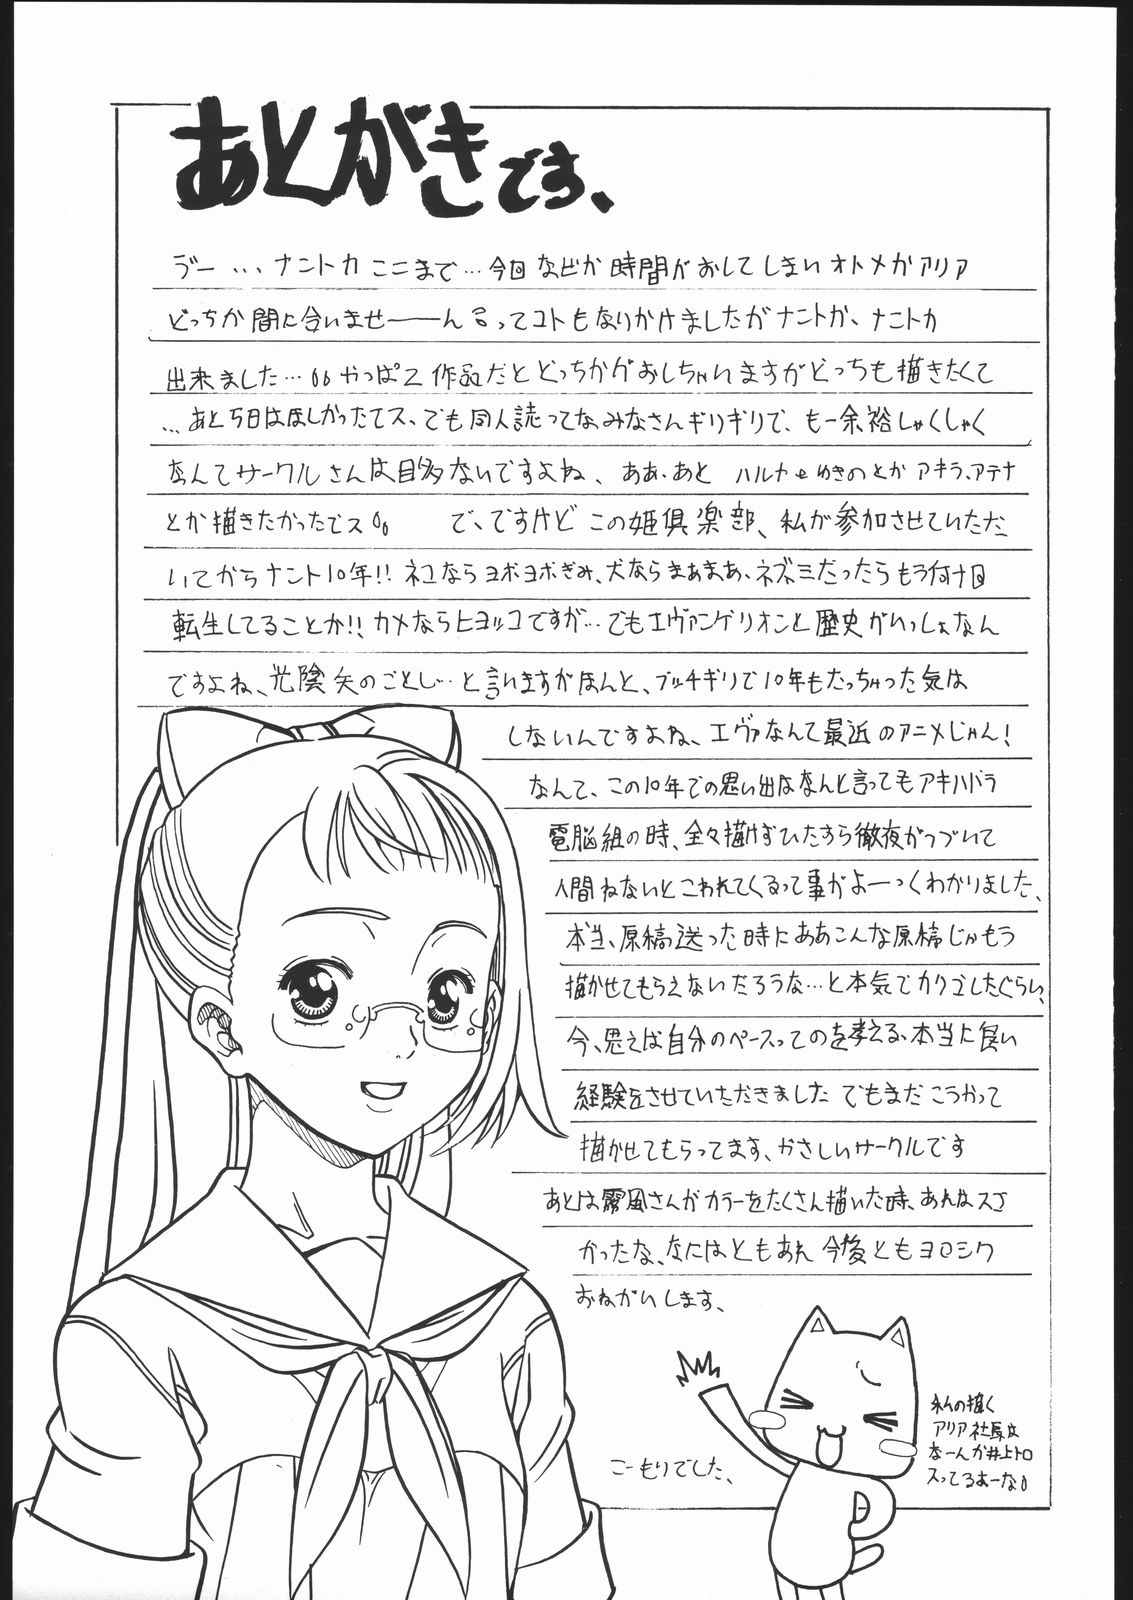 あとがきです、
デー...ナントカここまで…今回などか時間がおしてしまいオトメかアリア
どっちか間に合いませ――んるってコトもなりかけましたがナントカ、ナニトカ
出来ました…。。やっぱ2作品だとどっちかがおしちゃいますがどっちも描きたくて
…あと5日はほしかったてス、でも同人誌ってなみなさんギリギリで、も一余裕しゃくしゃく
なんてサークルさんは目多ないですよね、ああ、あと ハルナとゆきのとかアキラ、アテナ
とか描きたかったでス。。 で、ですけどこの姫倶楽部、私が参加させていただ
いてからナント10年!!ネコならヨボヨボぎみ、犬ならまあまあ、ネズミだったらもう何十回
転生してることか!!カメならヒヨッコですが…でもエヴァンゲリオンと歴史がいっしょなん
ですよね、光陰矢のごとし…と言いますがほんと、ブッチギリで10年もたっちゃった気は
しないんですよね、エヴァなんて最近のアニメじゃん!
なんて、この10年での思い出はなんと言ってもアキハバラ
電脳組の時、全々描けずひたすら徹夜がつづいて
人間ねないとこわれてくるって事がよーっくわかりました、
本当、原稿送った時にああこんな原稿じゃもう
描かせてもらえないだろうな…と本気でカクゴしたぐらい、
今、思えば自分のペースってのを考える、本当に良い
経験をさせていただきました でもまだこうかって
描かせてもらってます、やさしいサークルです
あとは霧風さんがカラーをたくさん描いた時、あれはスゴ
かったな、なにはともあれ今後ともヨロシク
おねがいします、
こーもりでした、
私の描く
アリア社長は
なーんか井上トロ
入ってるよーな。